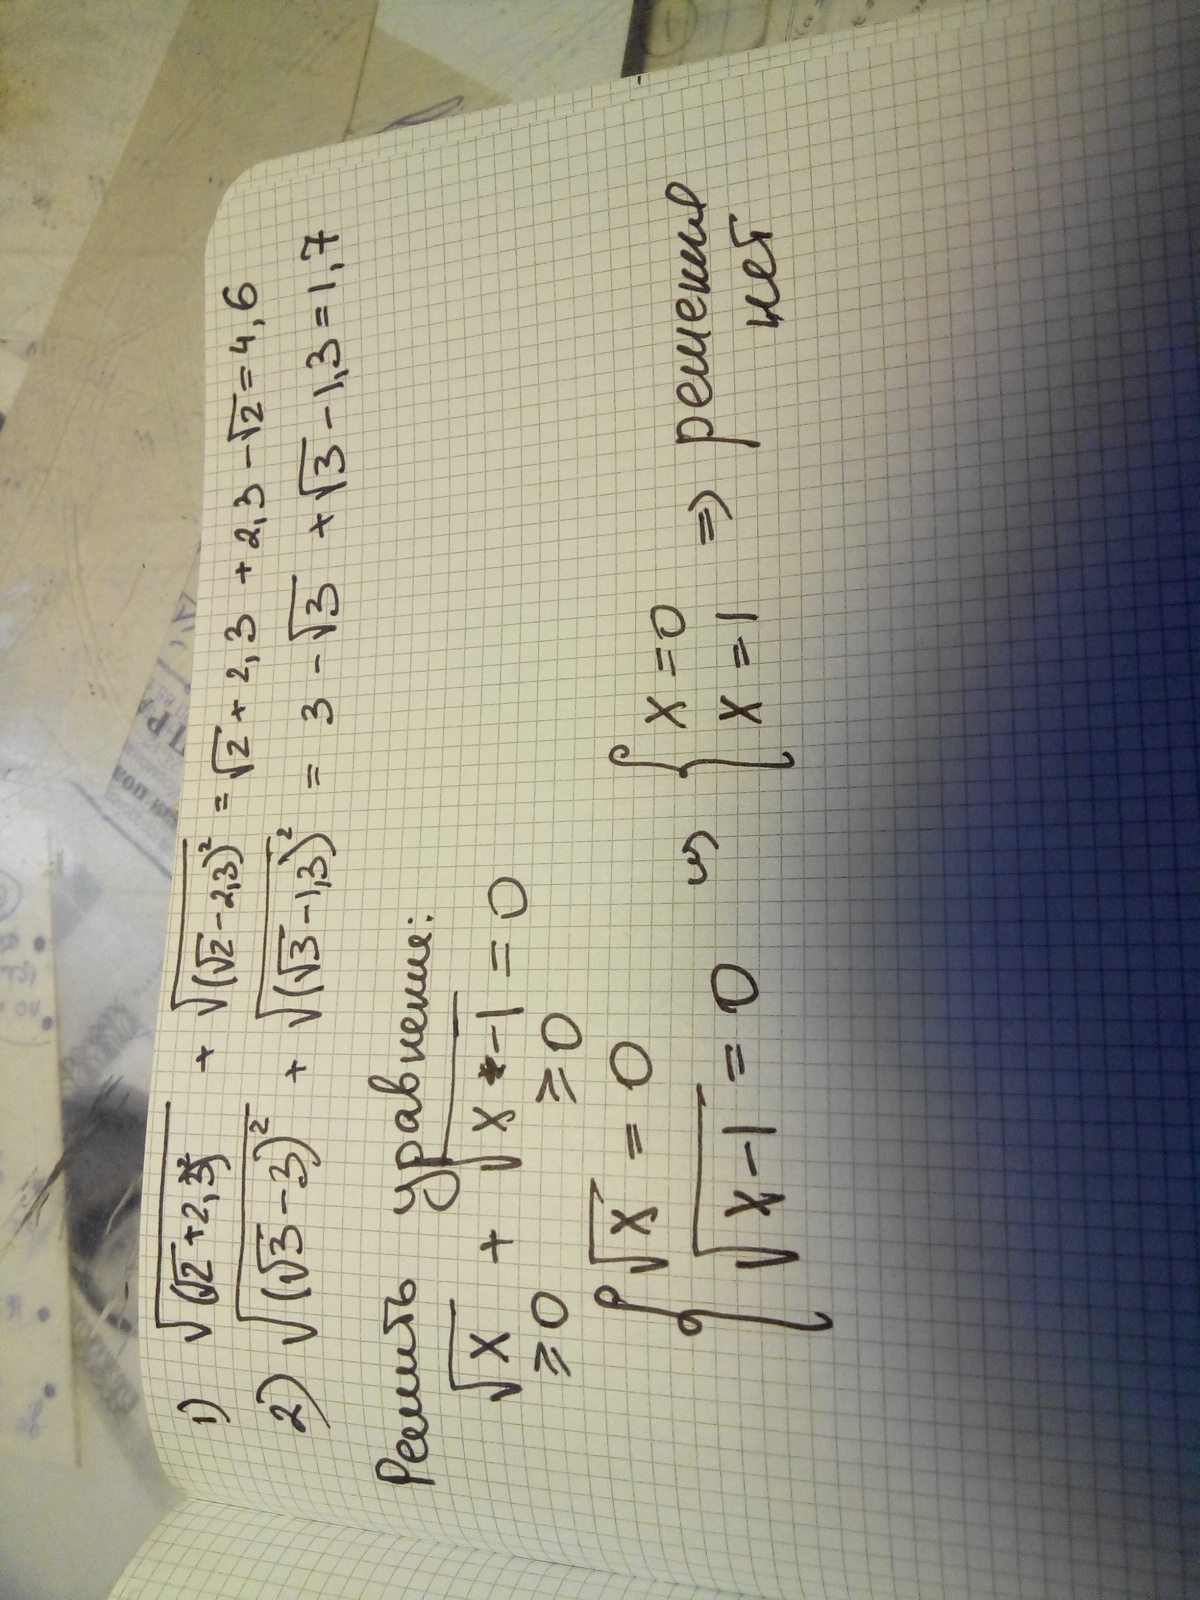 1) √(√2+2,3)² + √(√2-2,3)² = √2+2,3+2,3-√2=4,6
2) √(√3-3)² + √(√3-1,3)² = 3-√3 +√3-1,3=1,7
Решить уравнение:
√x + √x-1 = 0
≥0 ≥0
{ √x = 0 { x=0 => решения
{ √x-1 = 0 { x=1 нет